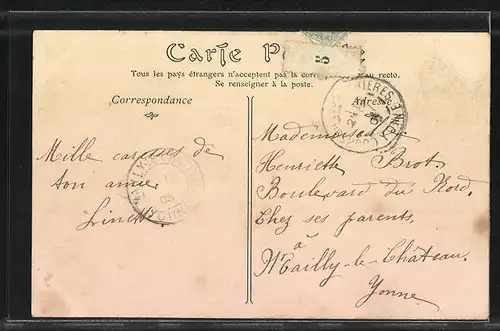 Carte
Tous les pays étrangers n'acceptent pas la au recto.
Se renseigner à la poste.
Correspondance
Adresse
5
Mille caresses de
ton amie
Mademoiselle
Henriette Brot
Boulevard du Nord
Chez ses parents,
à
Mailly-le-Château
Yonne